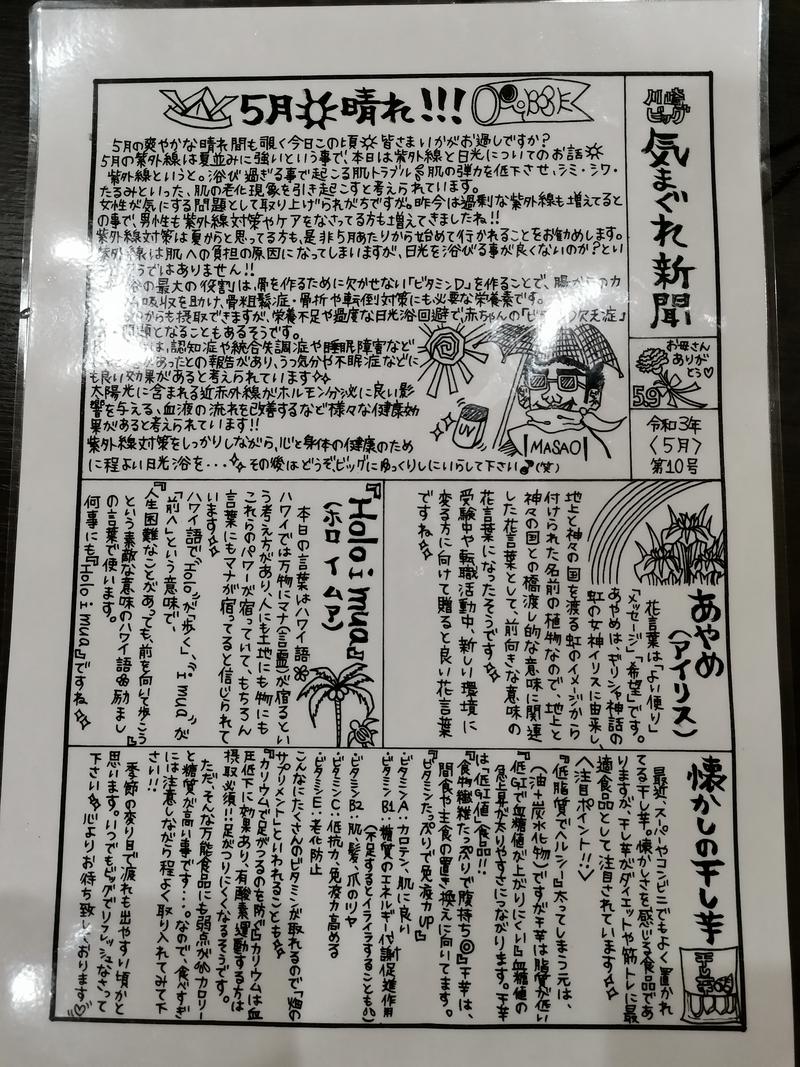 川崎
ビッグ
気まぐれ新聞
お母さん
ありが
とう♡
5.9
令和3年
〈5月〉
第10号
5月☀晴れ!!!
5月の爽やかな晴れ間も覗く今日この頃☀皆さまいかがお過しですか?
5月の紫外線は夏並みに強いという事で、本日は紫外線と日光についてのお話☀
紫外線というと。浴び過ぎる事で起こる肌トラブル 肌の弾力を低下させ、シミ・シワ・
たるみといった、肌の老化現象を引き起こすと考えられています。
女性が気にする問題として取り上げられがちですが。昨今は過剰な紫外線も増えてると
の事で、男性も紫外線対策やケアをなさってる方も増えてきましたね!!
紫外線対策は夏からと思ってる方も、是非5月あたりから始めて行かれることをお勧めします。
紫外線は肌への負担の原因になってしまいますが、日光を浴びる事が良くないのか?とい
うではありません!!
の最大の役割は、骨を作るために欠かせない「ビタミンD」を作ることで、腸からのカ
吸収を助け、骨粗鬆症・骨折や転倒対策にも必要な栄養素です。
からも摂取できますが、栄養不足や過度な日光浴回避で、赤ちゃんの「ビタミンD欠乏症」
問題となることもあるそうです。
は、認知症や統合失調症や睡眠障害など
があったとの報告があり、うつ気分や不眠症などに
も良い効果があると考えられています✧✧
太陽光に含まれる近赤外線がホルモン分泌に良い影
響を与える、血液の流れを改善するなど様々な健康効
果があると考えられています!!
紫外線対策をしっかりしながら、心と身体の健康のため
に程よい日光浴を・・・✧ その後はどうぞ、ビッグにゆっくりしにいらして下さい♪(笑)
UV
MASAO
あやめ
(アイリス)
花言葉は「よい便り」
「メッセージ」「希望」です。
あやめは、ギリシャ神話の
虹の女神イリスに由来し、
地上と神々の国を渡る虹のイメージから
付けられた名前の植物なので、地上と
神々の国との橋渡し的な意味に関連
した花言葉として、前向きな意味の
花言葉になったそうです✧
受験中や転職活動中、新しい環境に
変る方に向けて贈ると良い花言葉
ですね✧
『Holo i mua』
(ホロ イ ムア)
本日の言葉はハワイ語
ハワイでは万物にマナ(言霊)が宿るとい
う考え方があり、人にも土地にも物にも
これらのパワーが宿っていて、もちろん
言葉にもマナが宿ってると信じられて
います✧
ハワイ語で〝Holo〟が「歩く」、〝i mua〟が
「前へ」という意味で、
『人生困難なことがあっても、前を向いて歩こう』
という素敵な意味のハワイ語 励まし
の言葉で使います。
何事にも『Holo i mua』ですね✧
懐かしの干し芋
干し芋
最近、スーパーやコンビニでもよく置かれ
てる干し芋。懐かしさを感じる食品であ
りますが、干し芋がダイエットや筋トレに最
適食品として注目されています✧
〈注目ポイント!!〉
『低脂質でヘルシー』太ってしまう元は、
(油+炭水化物)ですが干芋は脂質が低い
『低GIで血糖値が上がりにくい』血糖値の
急上昇が太りやすさにつながります。干芋
は「低GI値」食品!!
『食物繊維たっぷりで腹持ち◎』干芋は、
間食や主食の置き換えに向いてます。
『ビタミンたっぷりで免疫力UP』
・ビタミンA:カロテン、肌に良い
・ビタミンB1:糖質のエネルギー代謝促進作用
(不足するとイライラすることも)
・ビタミンB2:肌・髪、爪のツヤ
・ビタミンC:低抗力、免疫力高める
・ビタミンE:老化防止
こんなにたくさんのビタミンが取れるので「畑の
サプリメント」といわれることも✧
『カリウムで足がつるのを防ぐ』カリウムは血
圧低下に効果あり、有酸素運動する方は
摂取必須!!足がつりにくくなるそうです。
ただ、そんな万能食品にも弱点が カロリー
と糖質が高い事です・・・。なので、食べすぎ
には注意しながら程よく取り入れてみて下
さい!!
季節の変り目で疲れも出やすい頃かと
思います。いつでもビッグでリフレッシュなさって
下さい✧心よりお待ち致しております♡